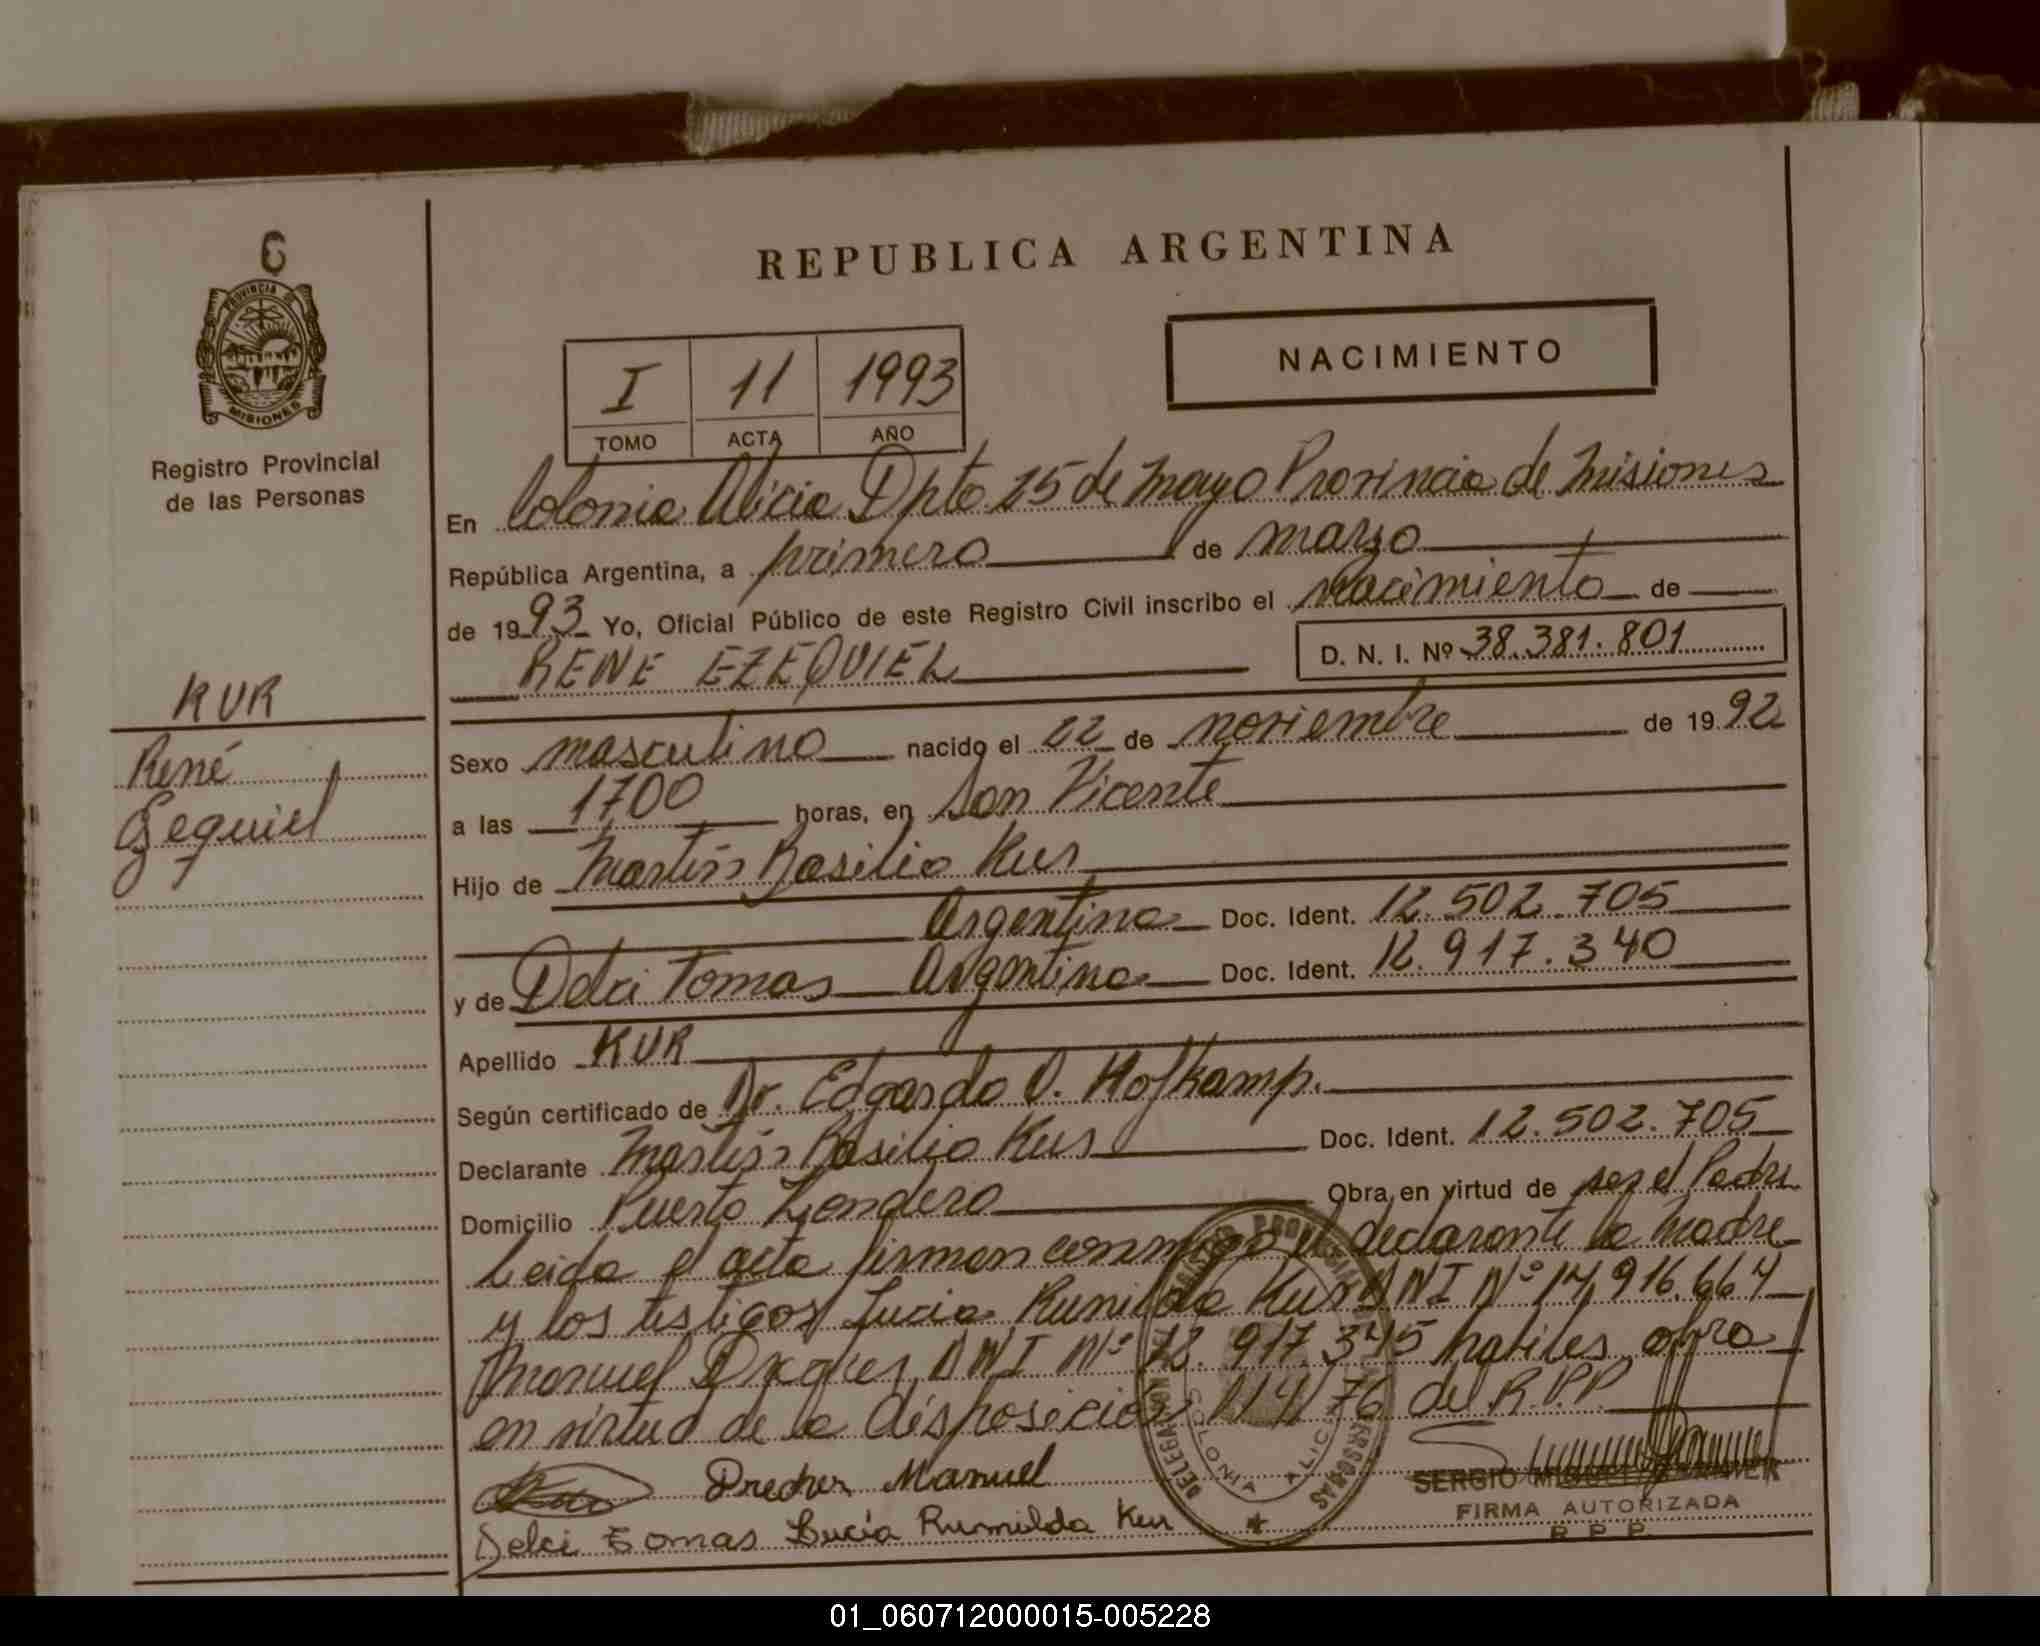 6
PROVINCIA DE
MISIONES
Registro Provincial
de las Personas
KUR
René
Ezequiel
REPUBLICA ARGENTINA
I 11 1993
TOMO ACTA AÑO
NACIMIENTO
En Colonia Alicia Dpto 25 de Mayo Provincia de Misiones
República Argentina, a primero de marzo
de 1993 Yo, Oficial Público de este Registro Civil inscribo el nacimiento de
RENE EZEQUIEL D. N. I. Nº 38.381.801
Sexo masculino nacido el 22 de noviembre de 1992
a las 1700 horas, en San Vicente
Hijo de Martín Basilio Kur
Argentina Doc. Ident. 12.502.705
y de Delci Tomas Argentina Doc. Ident. 12.917.340
Apellido KUR
Según certificado de Dr. Edgardo O. Hofkamp.
Declarante Martín Basilio Kur Doc. Ident. 12.502.705
Domicilio Puerto Londero Obra en virtud de ser el Padre
Leida el acta firman conmigo el declarante la Madre
y los testigos Lucia Rumilda Kur DNI Nº 14.916.664
Manuel DNI Nº 12.917.345 habiles obra
en virtud de la disposición 114/76 del R.P.P.
Drecher Manuel
Delci Tomas Lucía Rumilda Kur
DELEGACION REGISTRO PROVINCIAL PERSONAS
COLONIA ALICIA
SERGIO
FIRMA AUTORIZADA
R. P. P.
01_060712000015-005228